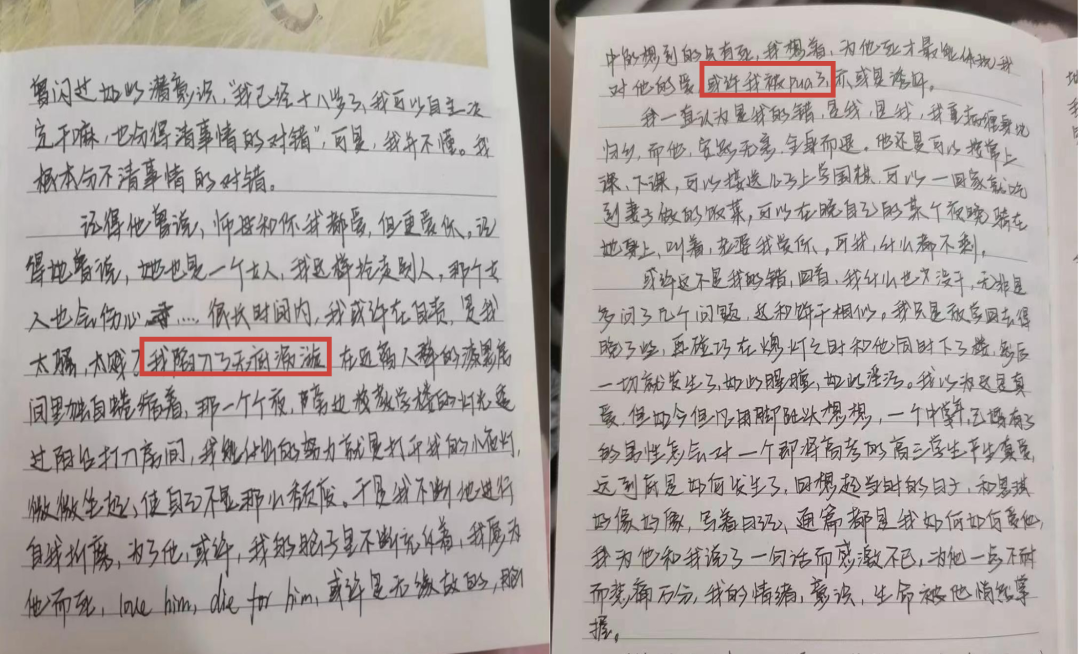 曾闪过如此潜意识，“我已经十八岁了，我可以自主决
定干嘛，也分得清事情的对错”，可是，我并不懂。我
根本分不清事情的对错。
记得他曾说，师母和你我都爱，但更爱你。记
得他曾说，她也是一个女人，我这样抢走别人，那个女
人也会伤心……很长时间内，我或许在自责，是我
太骚，太贱，我陷入了无底漩涡
在远离人群的漆黑房
间里独自蜷缩着，那一个个夜，隔边教学楼的灯光透
过阳台打入房间，我能做出的努力就是打开我的小夜灯，
微微坐起，使自己不显那么颓废。于是我不断地进行
自我折磨，为了他，或许，我的脑子里不断充斥着，我愿为
他而死，love him, die for him，或许是无缘故的，脑
中所想到的只有死，我想着，为他死才最能体现我
对他的爱，或许我被pua了，亦或是活该。
我一直认为是我的错，是我，是我，我
归乡，而他，安然无恙，全身而退。他还是可以接常上
课、下课，可以接送儿子上学围棋，可以一回家就吃
到妻子做的饭菜，可以在晚自习的某个夜晚骑在
她身上，叫着，老婆我爱你。可我，什么都不剩。
或许这不是我的错，回首，我什么也没干，无非是
多问了几个问题，这和饼干相似。我只是放学回去得
晚了些，再碰巧在熄灯之时和他同时下了楼，然后
一切就发生了，如此朦胧，如此淫秽。我以为这是真
爱，但如今但凡用脚趾头想想，一个中年、已婚有子
的男性怎会对一个即将高考的高三学生产生真爱，
这到底是如何发生了，回想起当时的日子，和思琪
好像好像，写着日记，通篇都是我如何如何爱他，
我为他和我说了一句话而感激不已，为他一点不耐
而悲痛万分，我的情绪，意识，生命被他悄然掌
握。